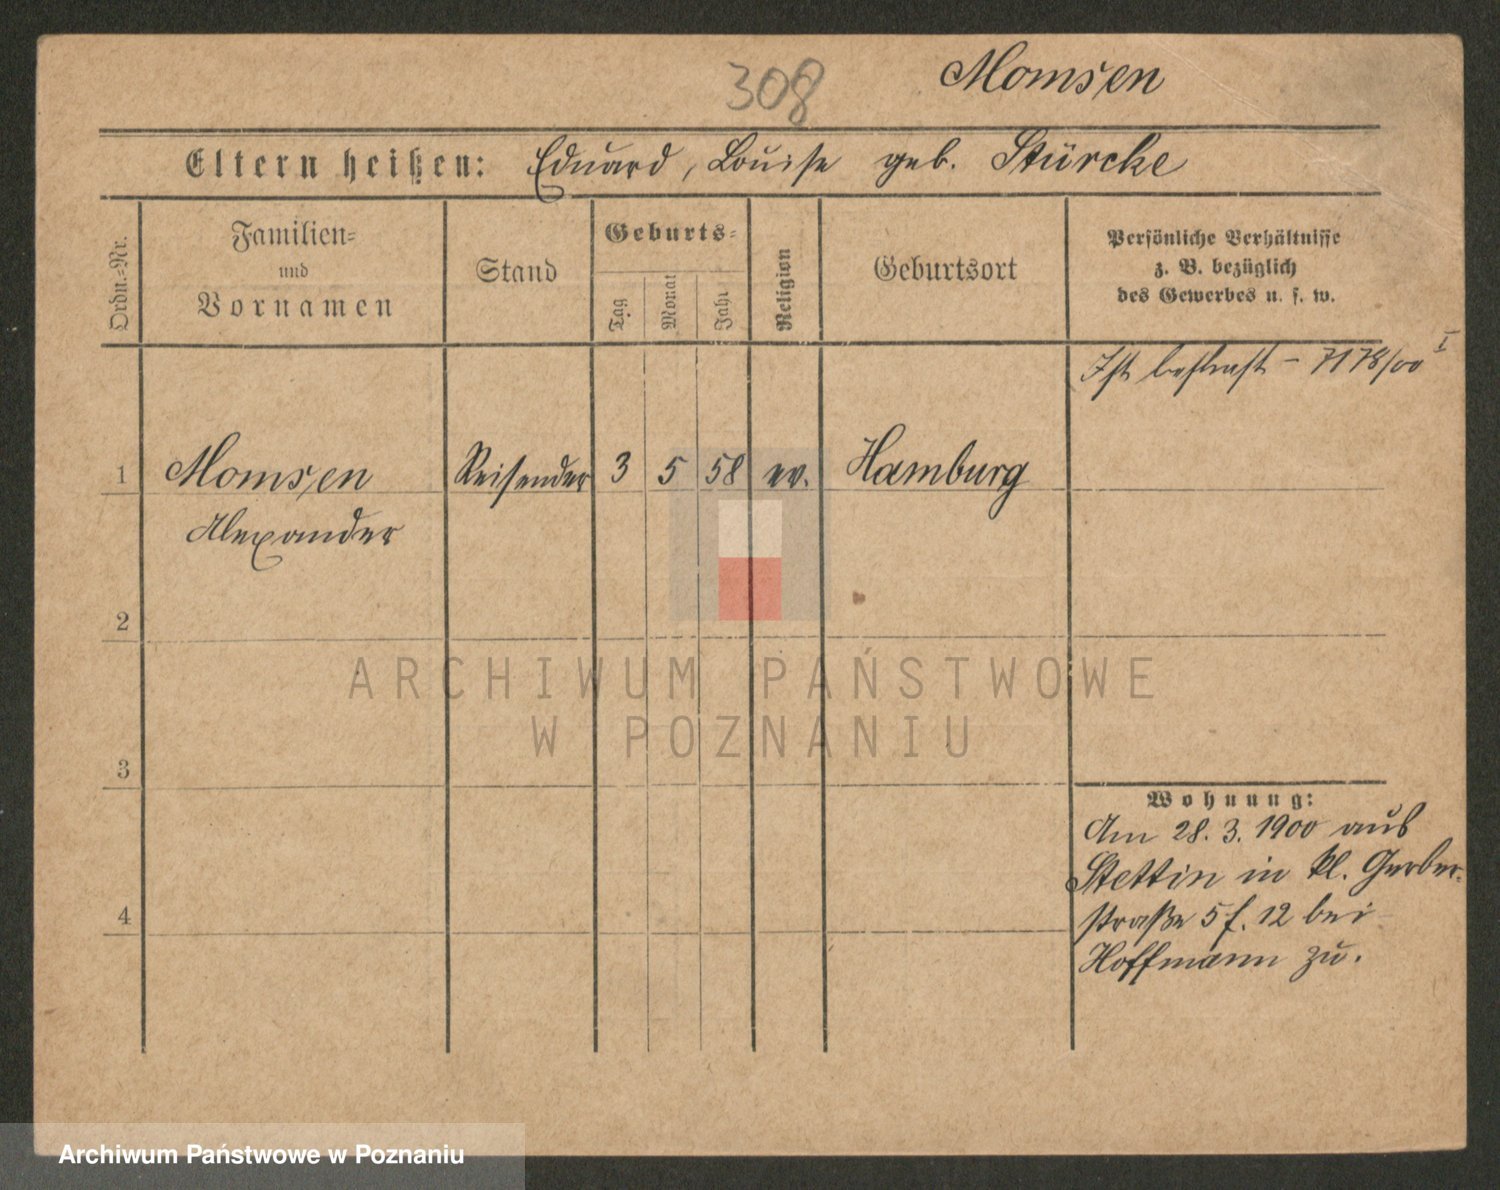 308
Momsen
Eltern heißen: Eduard, Louise geb. Stürcke
Ordn.=Nr.
Familien=
und
Vornamen
Stand
Geburts=
Tag
Monat
Jahr
Religion
Geburtsort
Persönliche Verhältnisse
z. B. bezüglich
des Gewerbes u. s. w.
Ist bestraft - 7178/00 I
1 Momsen Reisender 3 5 58 ev. Hamburg
Alexander
2
3
4
ARCHIWUM PAŃSTWOWE
W POZNANIU
Wohnung:
Am 28. 3. 1900 aus
Stettin in kl. Gerber-
straße 5 f. 12 bei
Hoffmann zu.
Archiwum Państwowe w Poznaniu